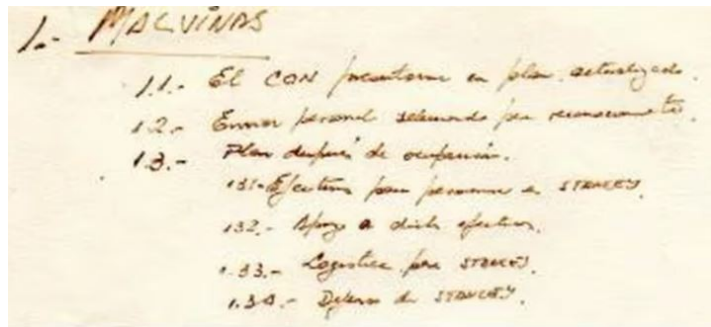 1.- MALVINAS
1.1.- El CON presentarme en plan actualizado.
1.2.- Enviar personal seleccionado para reconocimiento.
1.3.- Plan después de ocupación.
131.- Efectivos para permanecer en STANLEY.
132.- Apoyo a dichos efectivos.
1.33.- Logística para STANLEY.
1.34.- Defensa de STANLEY.